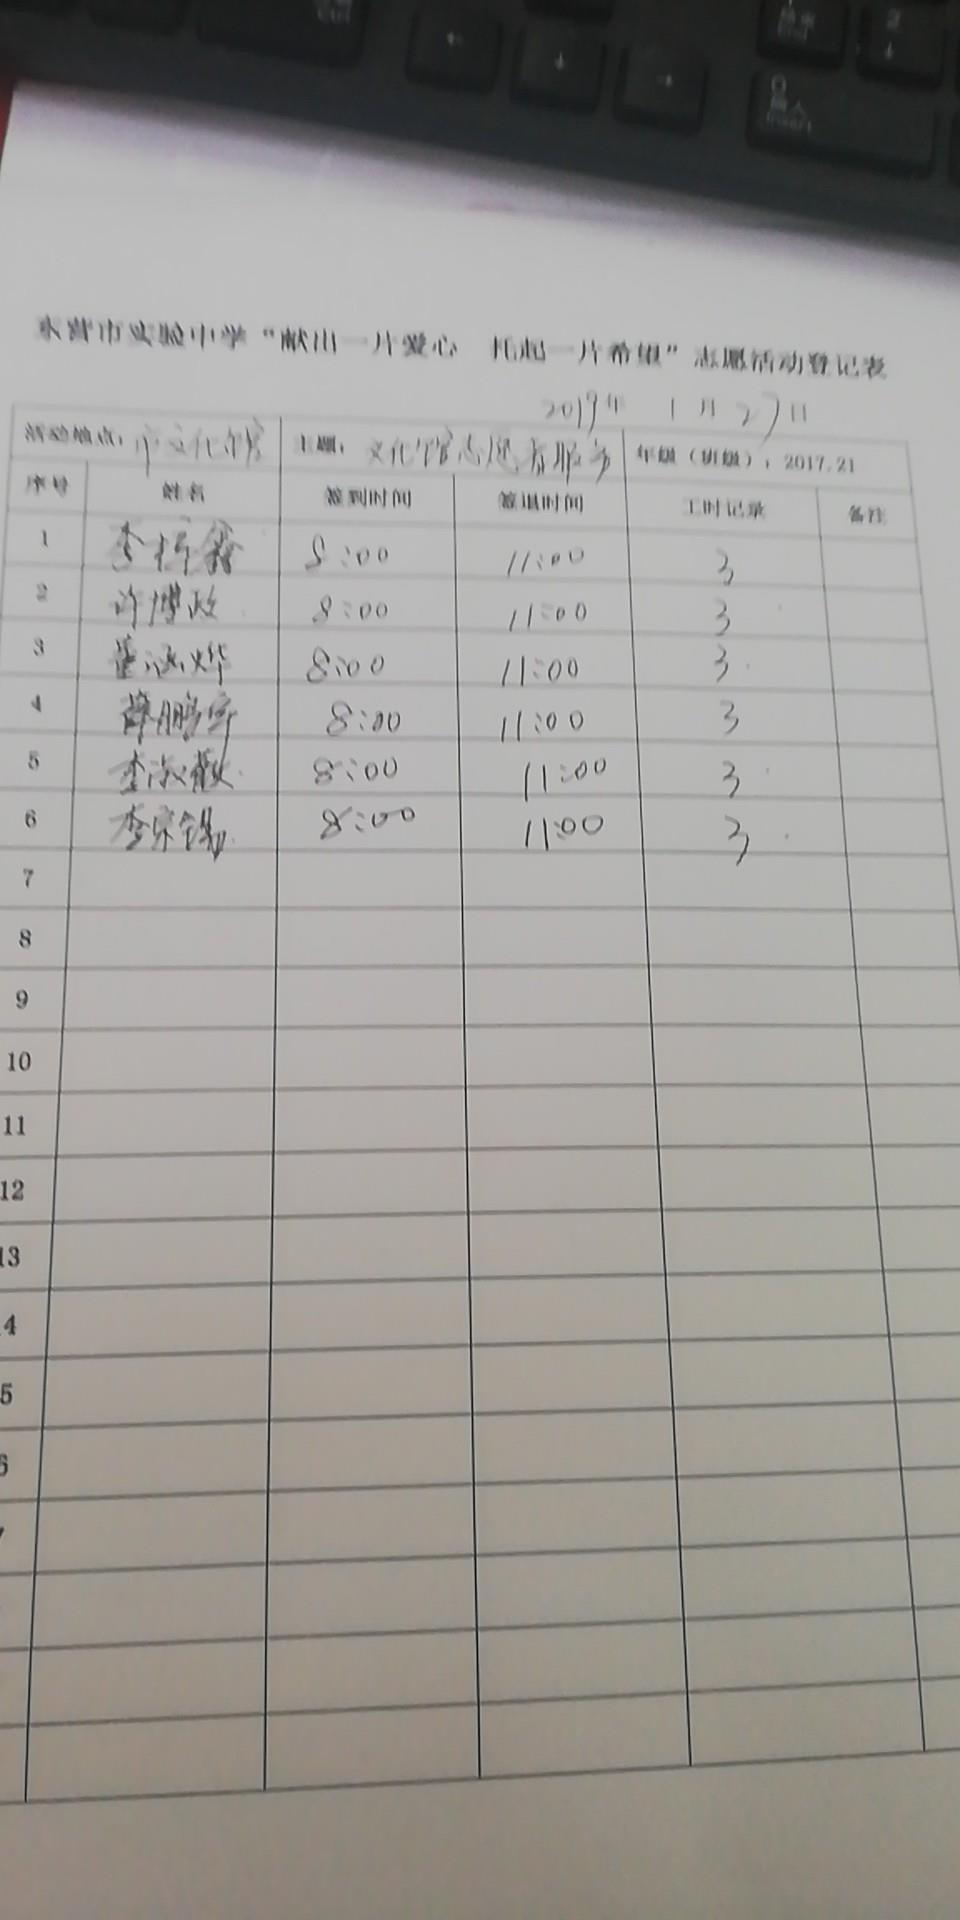 东营市实验中学“献出一片爱心 托起一片希望”志愿活动登记表
2019年 1月27日
活动地点：市文化馆 主题：文化馆志愿者服务 年级（班级）：2017.21
序号 姓名 签到时间 签退时间 工时记录 备注
1 李梓 8:00 11:00 3
2 许博政 8:00 11:00 3
3 董涵烨 8:00 11:00 3
4 薛鹏宇 8:00 11:00 3
5 李淑 8:00 11:00 3
6 李宗锡 8:00 11:00 3
7
8
9
10
11
12
13
4
5
6
7